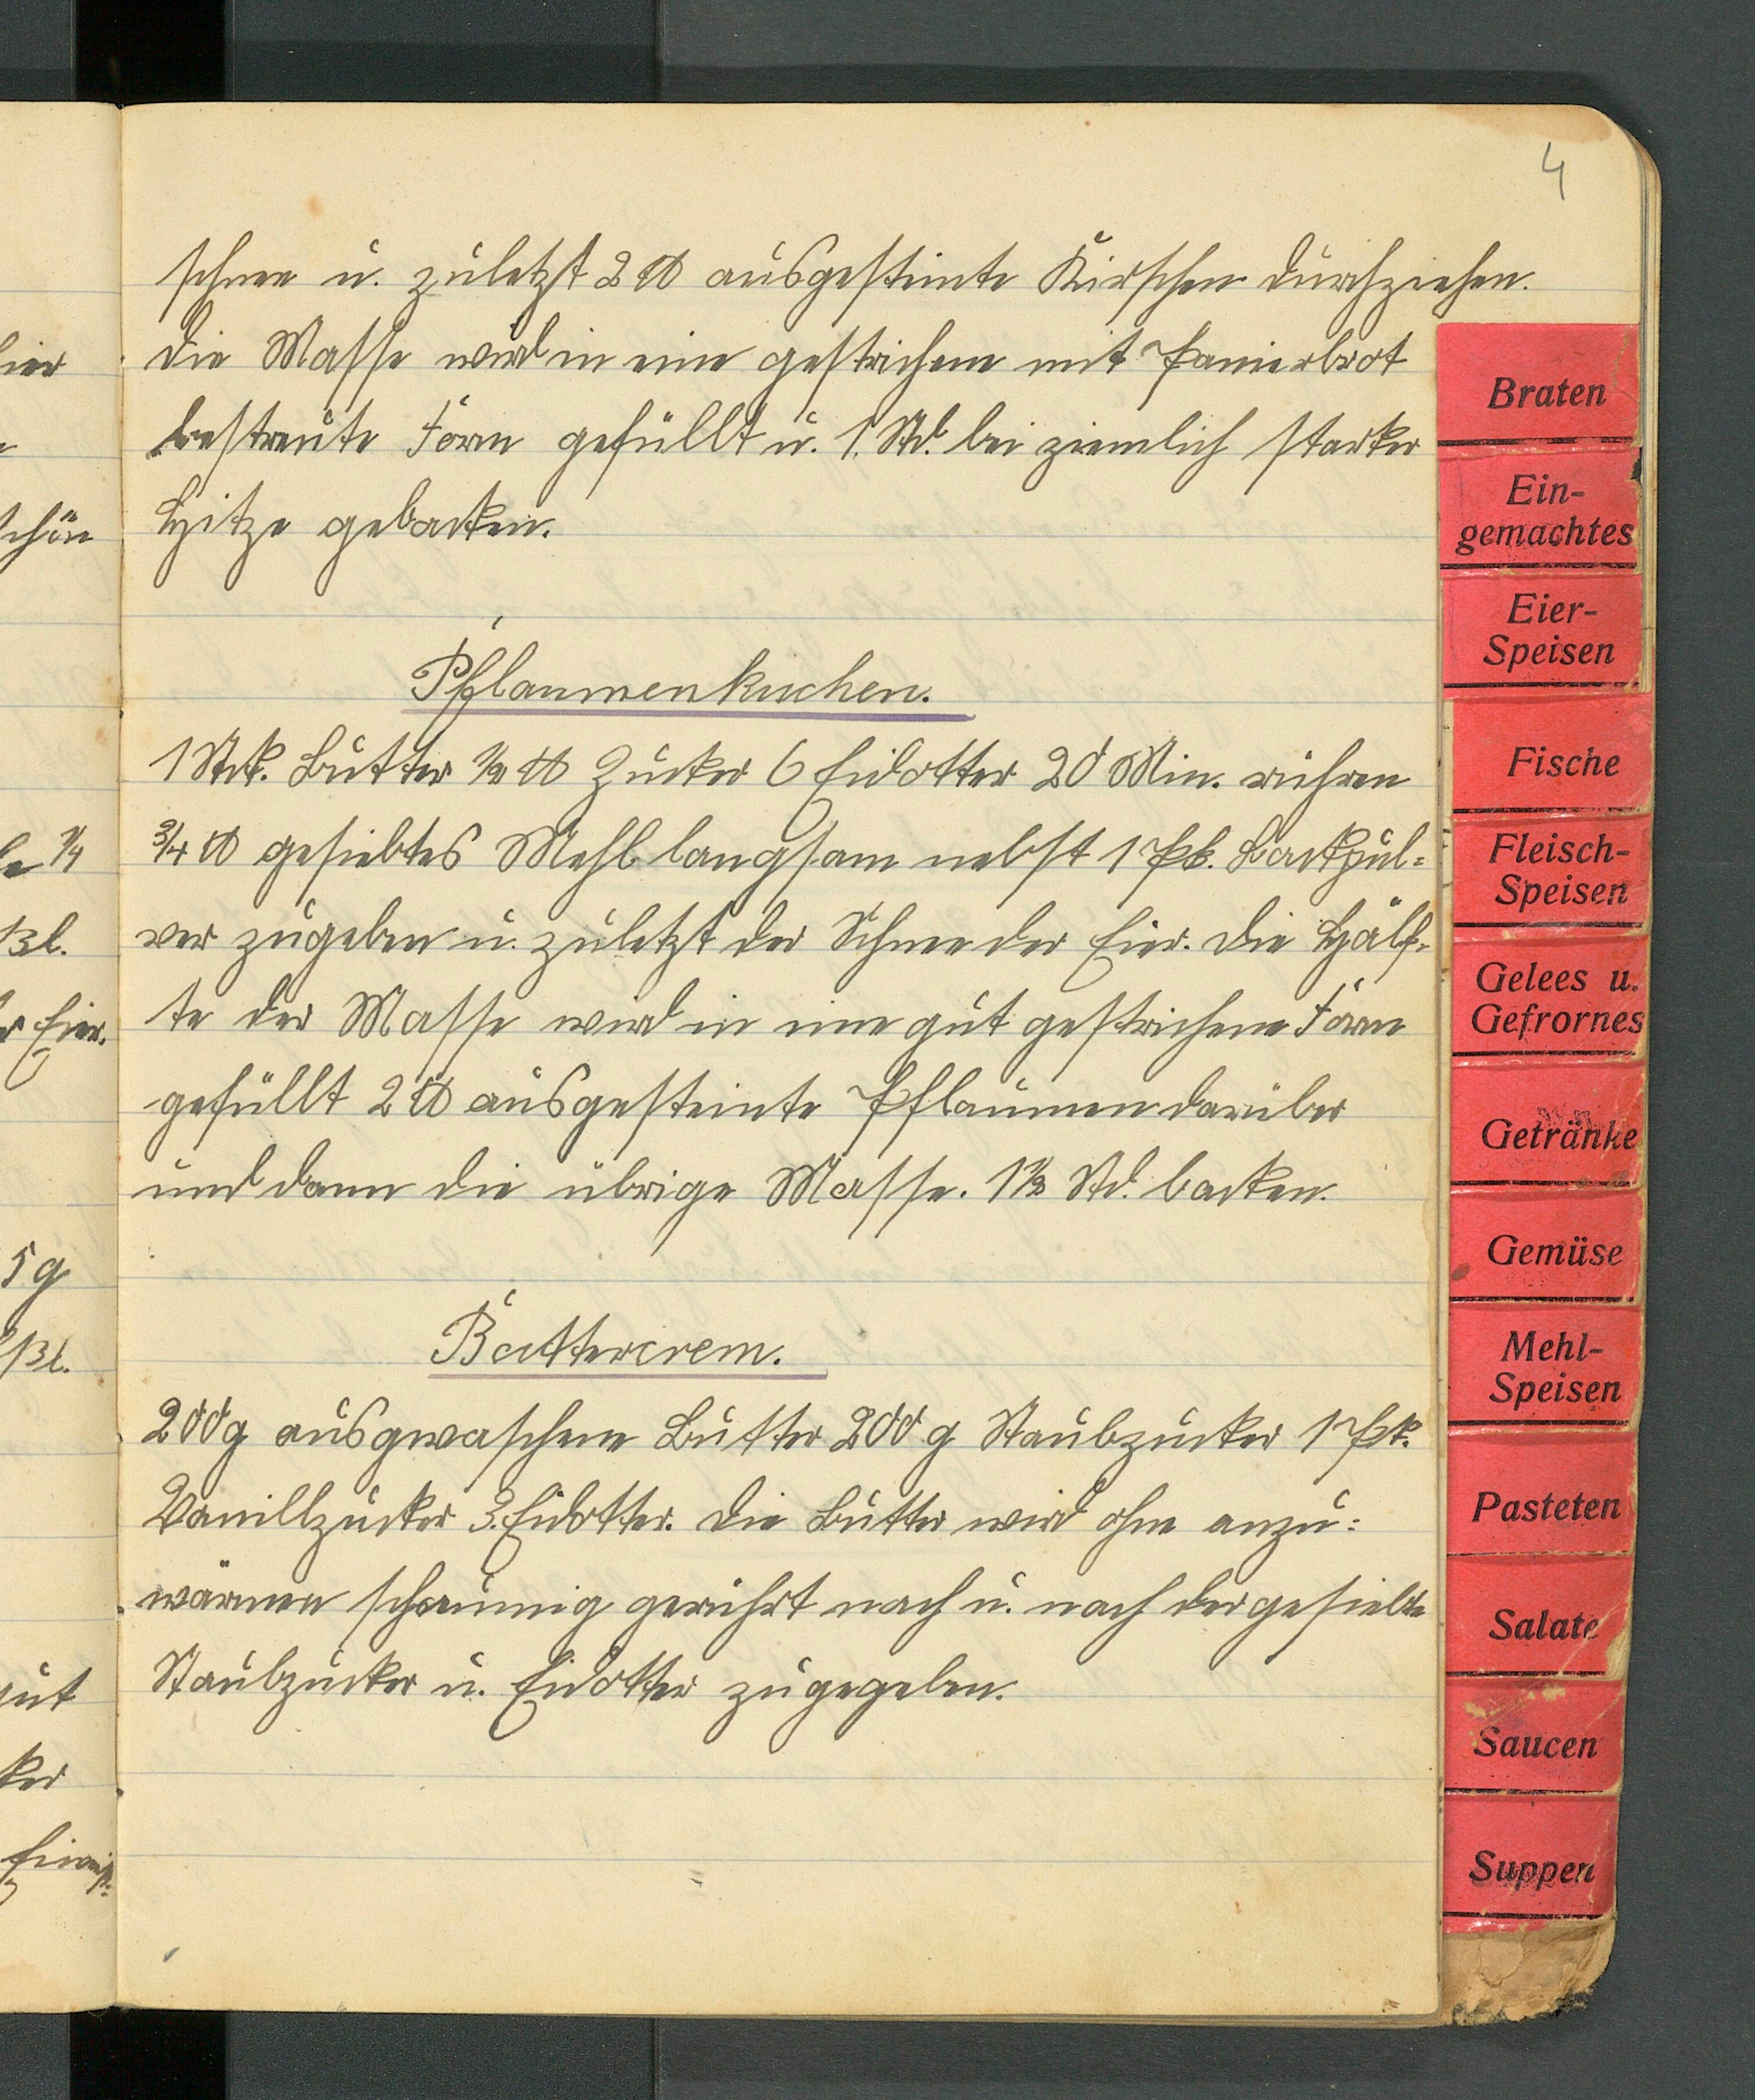 4
schnee u. zuletzt 2 ℔ ausgesteinte Kirschen durchziehen.
Die Masse wird in eine gestrichene mit Panierbrot
bestreute Form gefüllt u. 1 Std. bei ziemlich starker
Hitze gebacken.
Pflaumenkuchen.
1 Stck. Butter ½ ℔ Zucker 6 Eidotter 20 Min. rühren
¾ ℔ gesiebtes Mehl langsam nebst 1 Pk. Backpul=
ver zugeben u. zuletzt der Schnee der Eier. Die Hälf=
te der Masse wird in eine gut gestrichene Form
gefüllt 2 ℔ ausgesteinte Pflaumen darüber
und dann die übrige Masse. 1½ Std. backen.
Buttercrem.
200 g ausgewaschene Butter 200 g Staubzucker 1 Pk.
Vanillzucker 3 Eidotter. Die Butter wird ohne anzu=
wärmen schaumig gerührt nach u. nach der gesiebte
Staubzucker u. Eidotter zugegeben.
Braten
Ein-
gemachtes
Eier-
Speisen
Fische
Fleisch-
Speisen
Gelees u.
Gefrornes
Getränke
Gemüse
Mehl-
Speisen
Pasteten
Salate
Saucen
Suppen
schön
¼
Bl.
Eier.
5 g
Bl.
gut